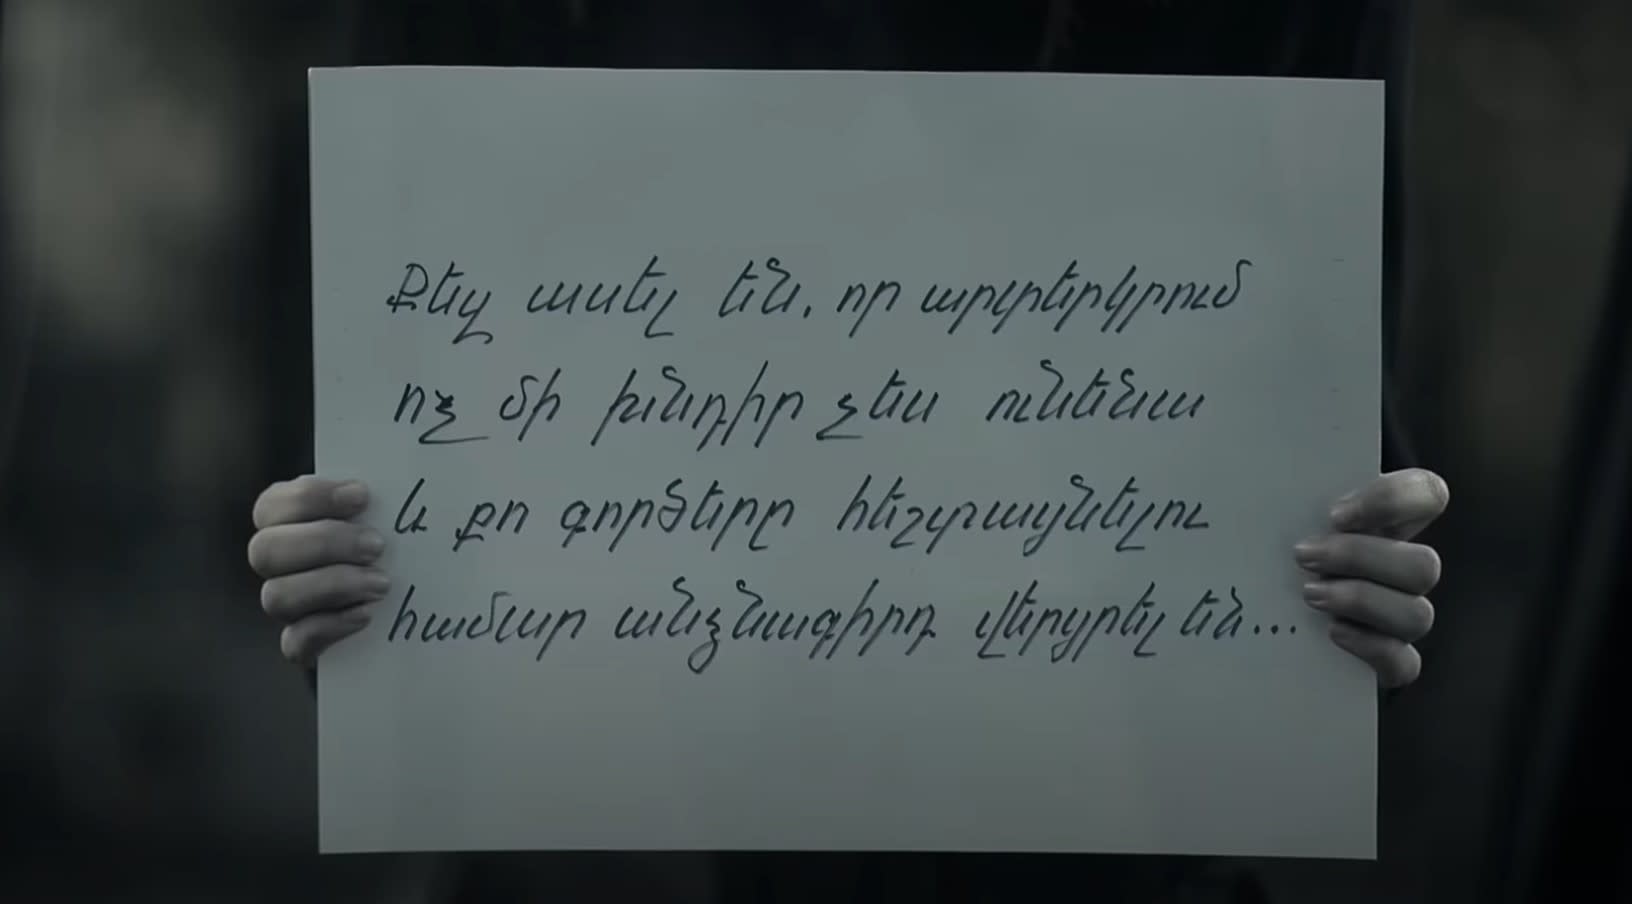 Քեզ ասել են, որ արտերկրում
ոչ մի խնդիր չես ունենա
և քո գործերը հեշտացնելու
համար անձնագիրդ վերցրել են...